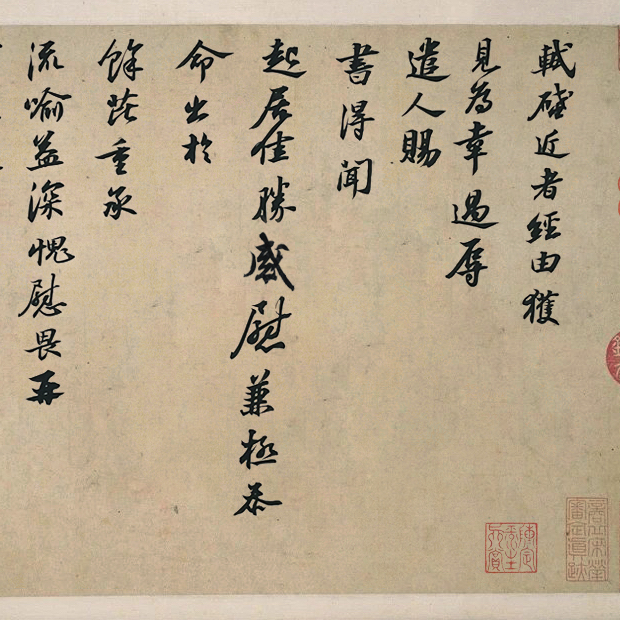 軾啓近者經由獲
見為幸過辱
遣人賜
書得聞
起居佳勝感慰兼極忝
命出於
餘芘重承
流喻益深愧慰畏再